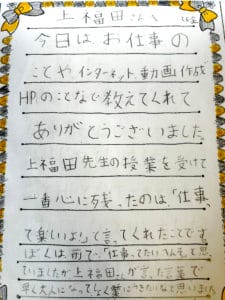 上福田さんへ
今日は、お仕事の
ことやインターネット、動画作成
HPのことなど教えてくれて
ありがとうございました
上福田先生の授業を受けて
一番心に残ったのは「仕事
て楽しいよ」と言ってくれたことです。
ぼくは、前まで「仕事ってたいへんそ」と思
ていましたが上福田さんが言った言葉で
早く大人になって